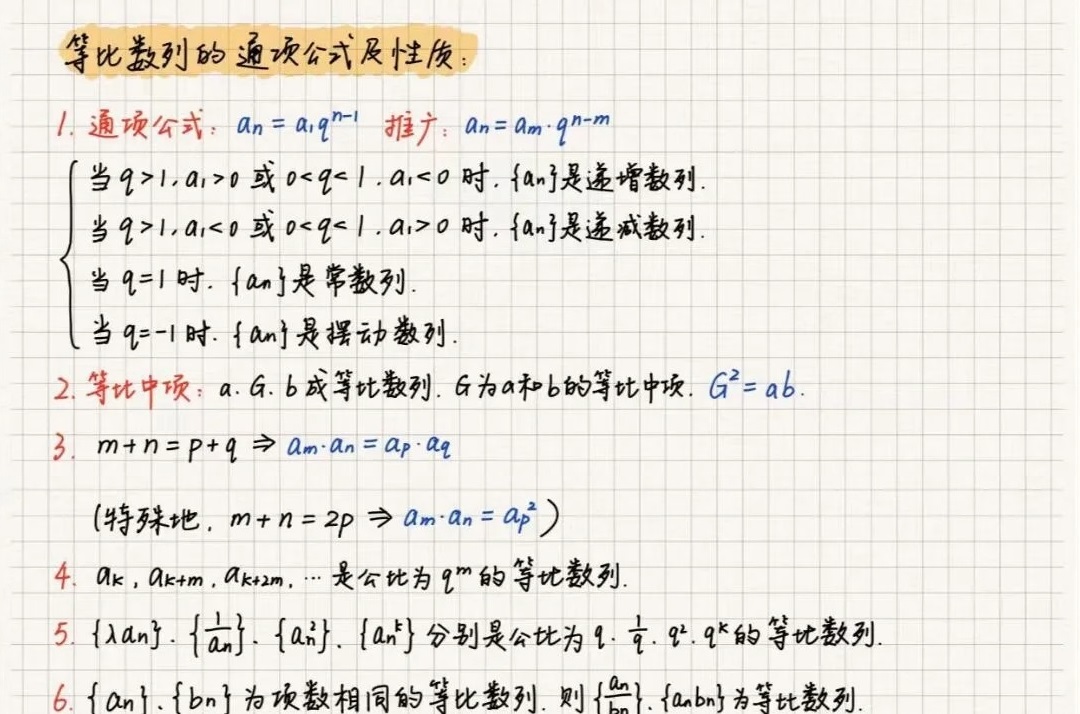 等比数列的通项公式及性质:
1. 通项公式: aₙ = a₁qⁿ⁻¹ 推广: aₙ = aₘ·qⁿ⁻ᵐ
当 q>1, a₁>0 或 0<q<1, a₁<0 时, {aₙ}是递增数列.
当 q>1, a₁<0 或 0<q<1, a₁>0 时, {aₙ}是递减数列.
当 q=1 时, {aₙ}是常数列.
当 q=-1 时, {aₙ}是摆动数列.
2. 等比中项: a, G, b 成等比数列, G 为a和b的等比中项. G² = ab.
3. m+n = p+q ⇒ aₘ·aₙ = aₚ·a_q
(特殊地, m+n = 2p ⇒ aₘ·aₙ = aₚ²)
4. aₖ, aₖ₊ₘ, aₖ₊₂ₘ, … 是公比为 qᵐ 的等比数列.
5. {λaₙ}, {1/aₙ}, {aₙ²}, {aₙᵏ} 分别是公比为 q, 1/q, q², qᵏ 的等比数列.
6. {aₙ}, {bₙ} 为项数相同的等比数列, 则 {aₙ/bₙ}, {aₙbₙ} 为等比数列.